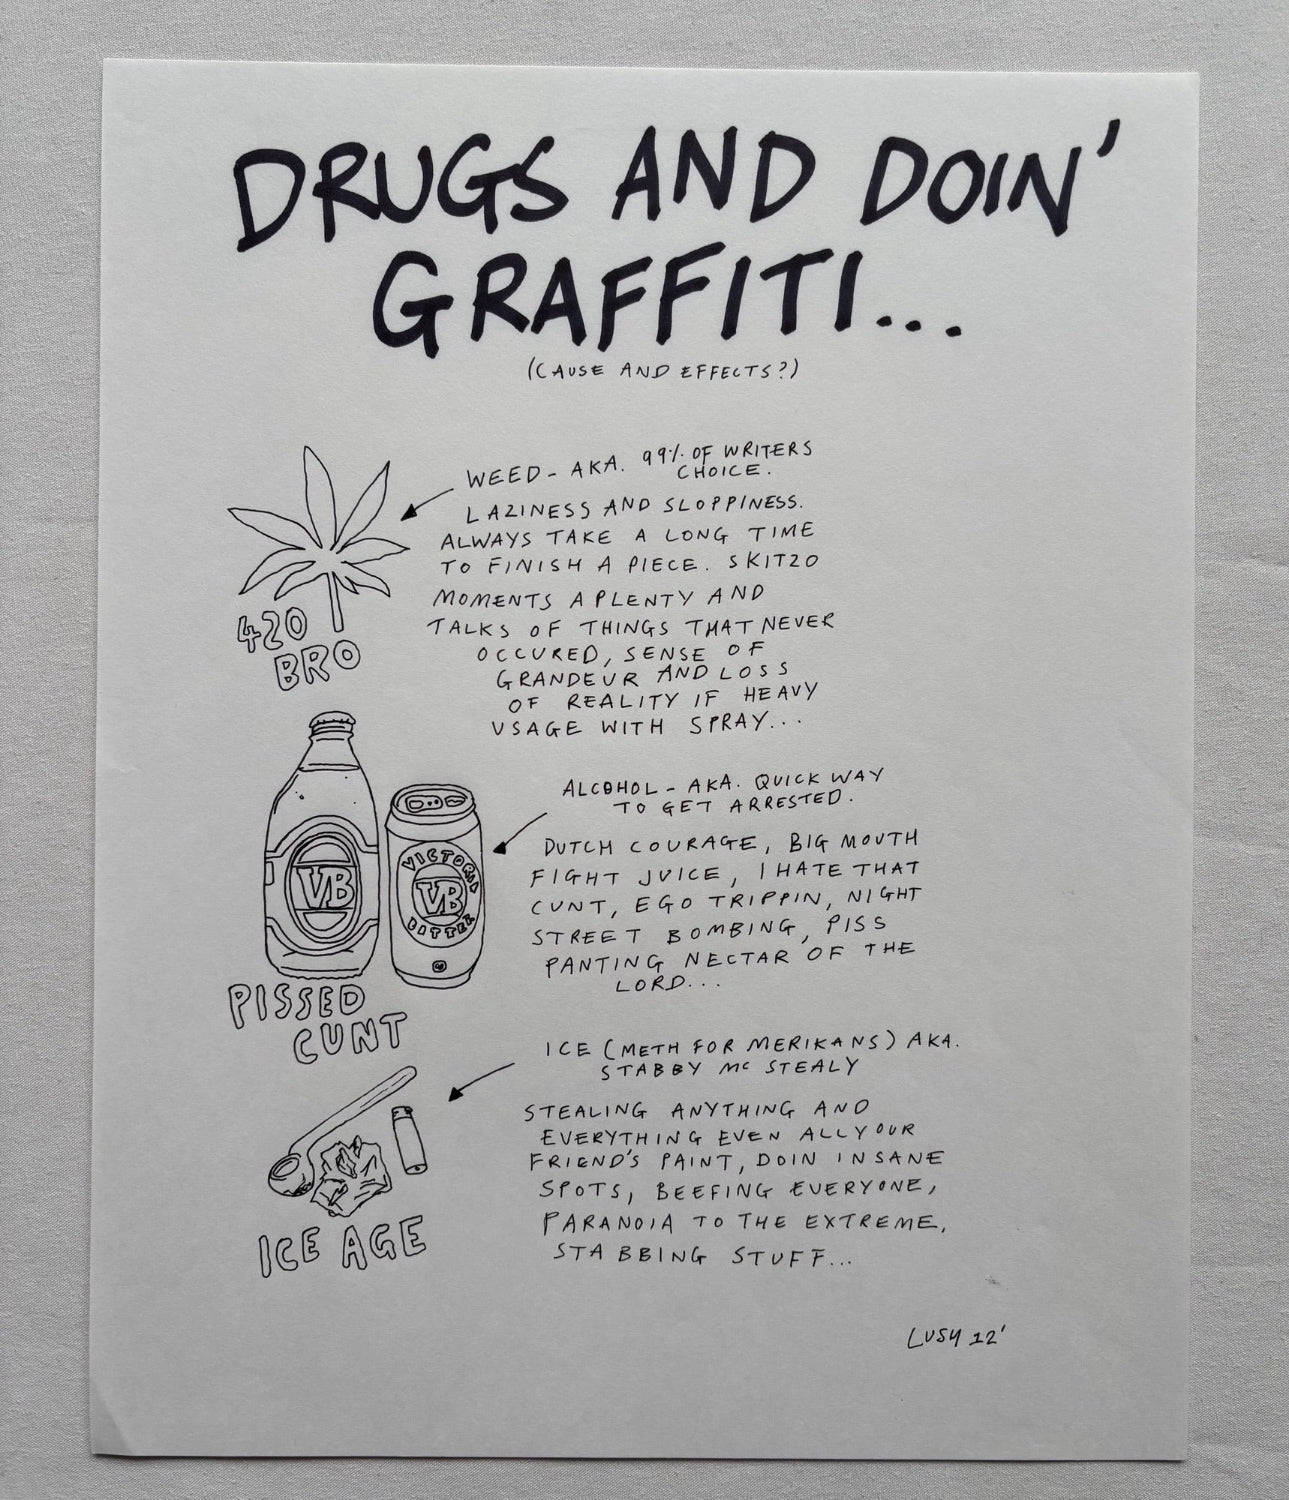 DRUGS AND DOIN'
GRAFFITI...
(CAUSE AND EFFECTS?)
WEED - AKA. 99% OF WRITERS
CHOICE.
LAZINESS AND SLOPPINESS.
ALWAYS TAKE A LONG TIME
TO FINISH A PIECE. SKITZO
MOMENTS APLENTY AND
TALKS OF THINGS THAT NEVER
OCCURED, SENSE OF
GRANDEUR AND LOSS
OF REALITY IF HEAVY
USAGE WITH SPRAY...
420
BRO
ALCOHOL - AKA. QUICK WAY
TO GET ARRESTED.
DUTCH COURAGE, BIG MOUTH
FIGHT JUICE, I HATE THAT
CUNT, EGO TRIPPIN, NIGHT
STREET BOMBING, PISS
PANTING NECTAR OF THE
LORD...
VB
VICTORIA
VB
BITTER
PISSED
CUNT
ICE (METH FOR MERIKANS) AKA.
STABBY Mc STEALY
STEALING ANYTHING AND
EVERYTHING EVEN ALL YOUR
FRIEND'S PAINT, DOIN INSANE
SPOTS, BEEFING EVERYONE,
PARANOIA TO THE EXTREME,
STABBING STUFF...
ICE AGE
LUSH 12'